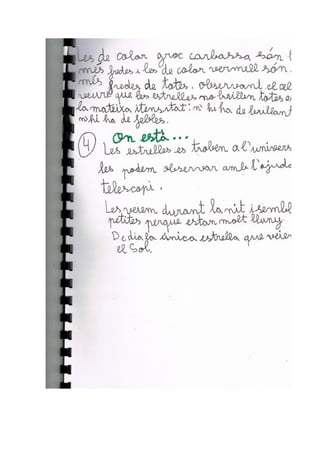 Les de color groc carbassa són
més fredes i les de color vermell són
més fredes de totes. Observant el cel
veure que les estrelles no brillen totes
la mateixa itensitat: n'hi ha de brillant
n'hi ha de febles.
4 On està...
Les estrelles es troben a l'univers
les podem observar amb l'ajuda
telescopi.
Les veiem durant la nit i sembl
petites perque estan molt lluny
De dia la única estrella que veiem
el Sol.